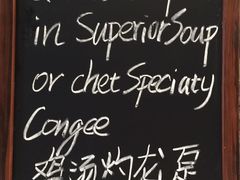 in Superior Soup
or chet Speciaty
Congee
鸡汤灼龙趸